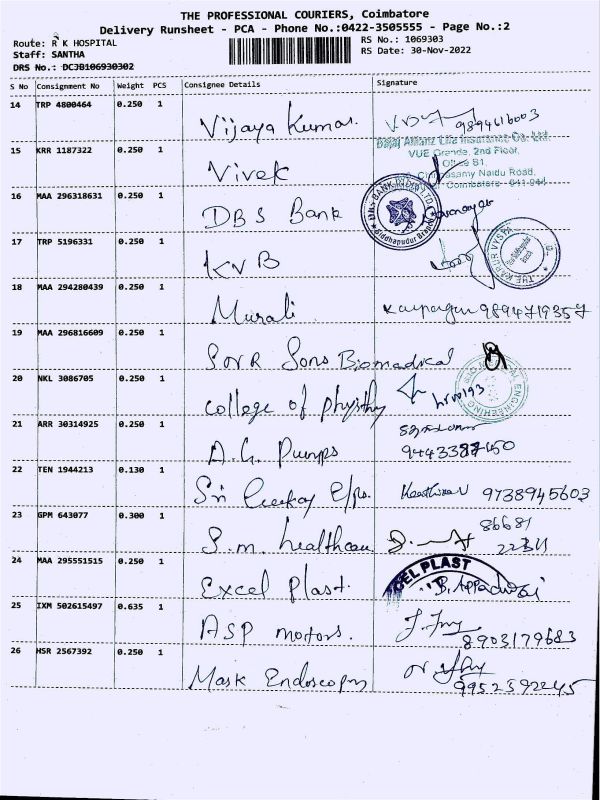 THE PROFESSIONAL COURIERS, Coimbatore
Delivery Runsheet - PCA - Phone No.:0422-3505555 - Page No.:2
Route: R K HOSPITAL
RS No.: 1069303
Staff: SANTHA
RS Date: 30-Nov-2022
DRS No.: DCJB106930302
S No Consignment No Weight PCS Consignee Details Signature
14 TRP 4800464 0.250 1 Vijaya Kumar. 9894616003
15 KRR 1187322 0.250 1 Vivek
Bajaj Allianz Life Insurance Co. Ltd.
VUE Grande, 2nd Floor,
Office B1,
Naidu Road,
Coimbatore - 641
16 MAA 296318631 0.250 1 DBS Bank
DBS BANK
Siddhapudur Branch
17 TRP 5196331 0.250 1 KVB
THE KARUR VYSYA
18 MAA 294280439 0.250 1 Murali 9894719357
19 MAA 296816609 0.250 1 Sons Biomadical
20 NKL 3086705 0.250 1 college of
ENGINEERING
21 ARR 30314925 0.250 1 A.G. Pumps
22 TEN 1944213 0.130 1 Sri 9738945603
23 GPM 643077 0.300 1 S.m. healthcare 86681
24 MAA 295551515 0.250 1 Excel Plast.
CEL PLAST
25 IXM 502615497 0.635 1 ASP motors. 8903179683
26 HSR 2567392 0.250 1 Mask Endoscopy 9952592245